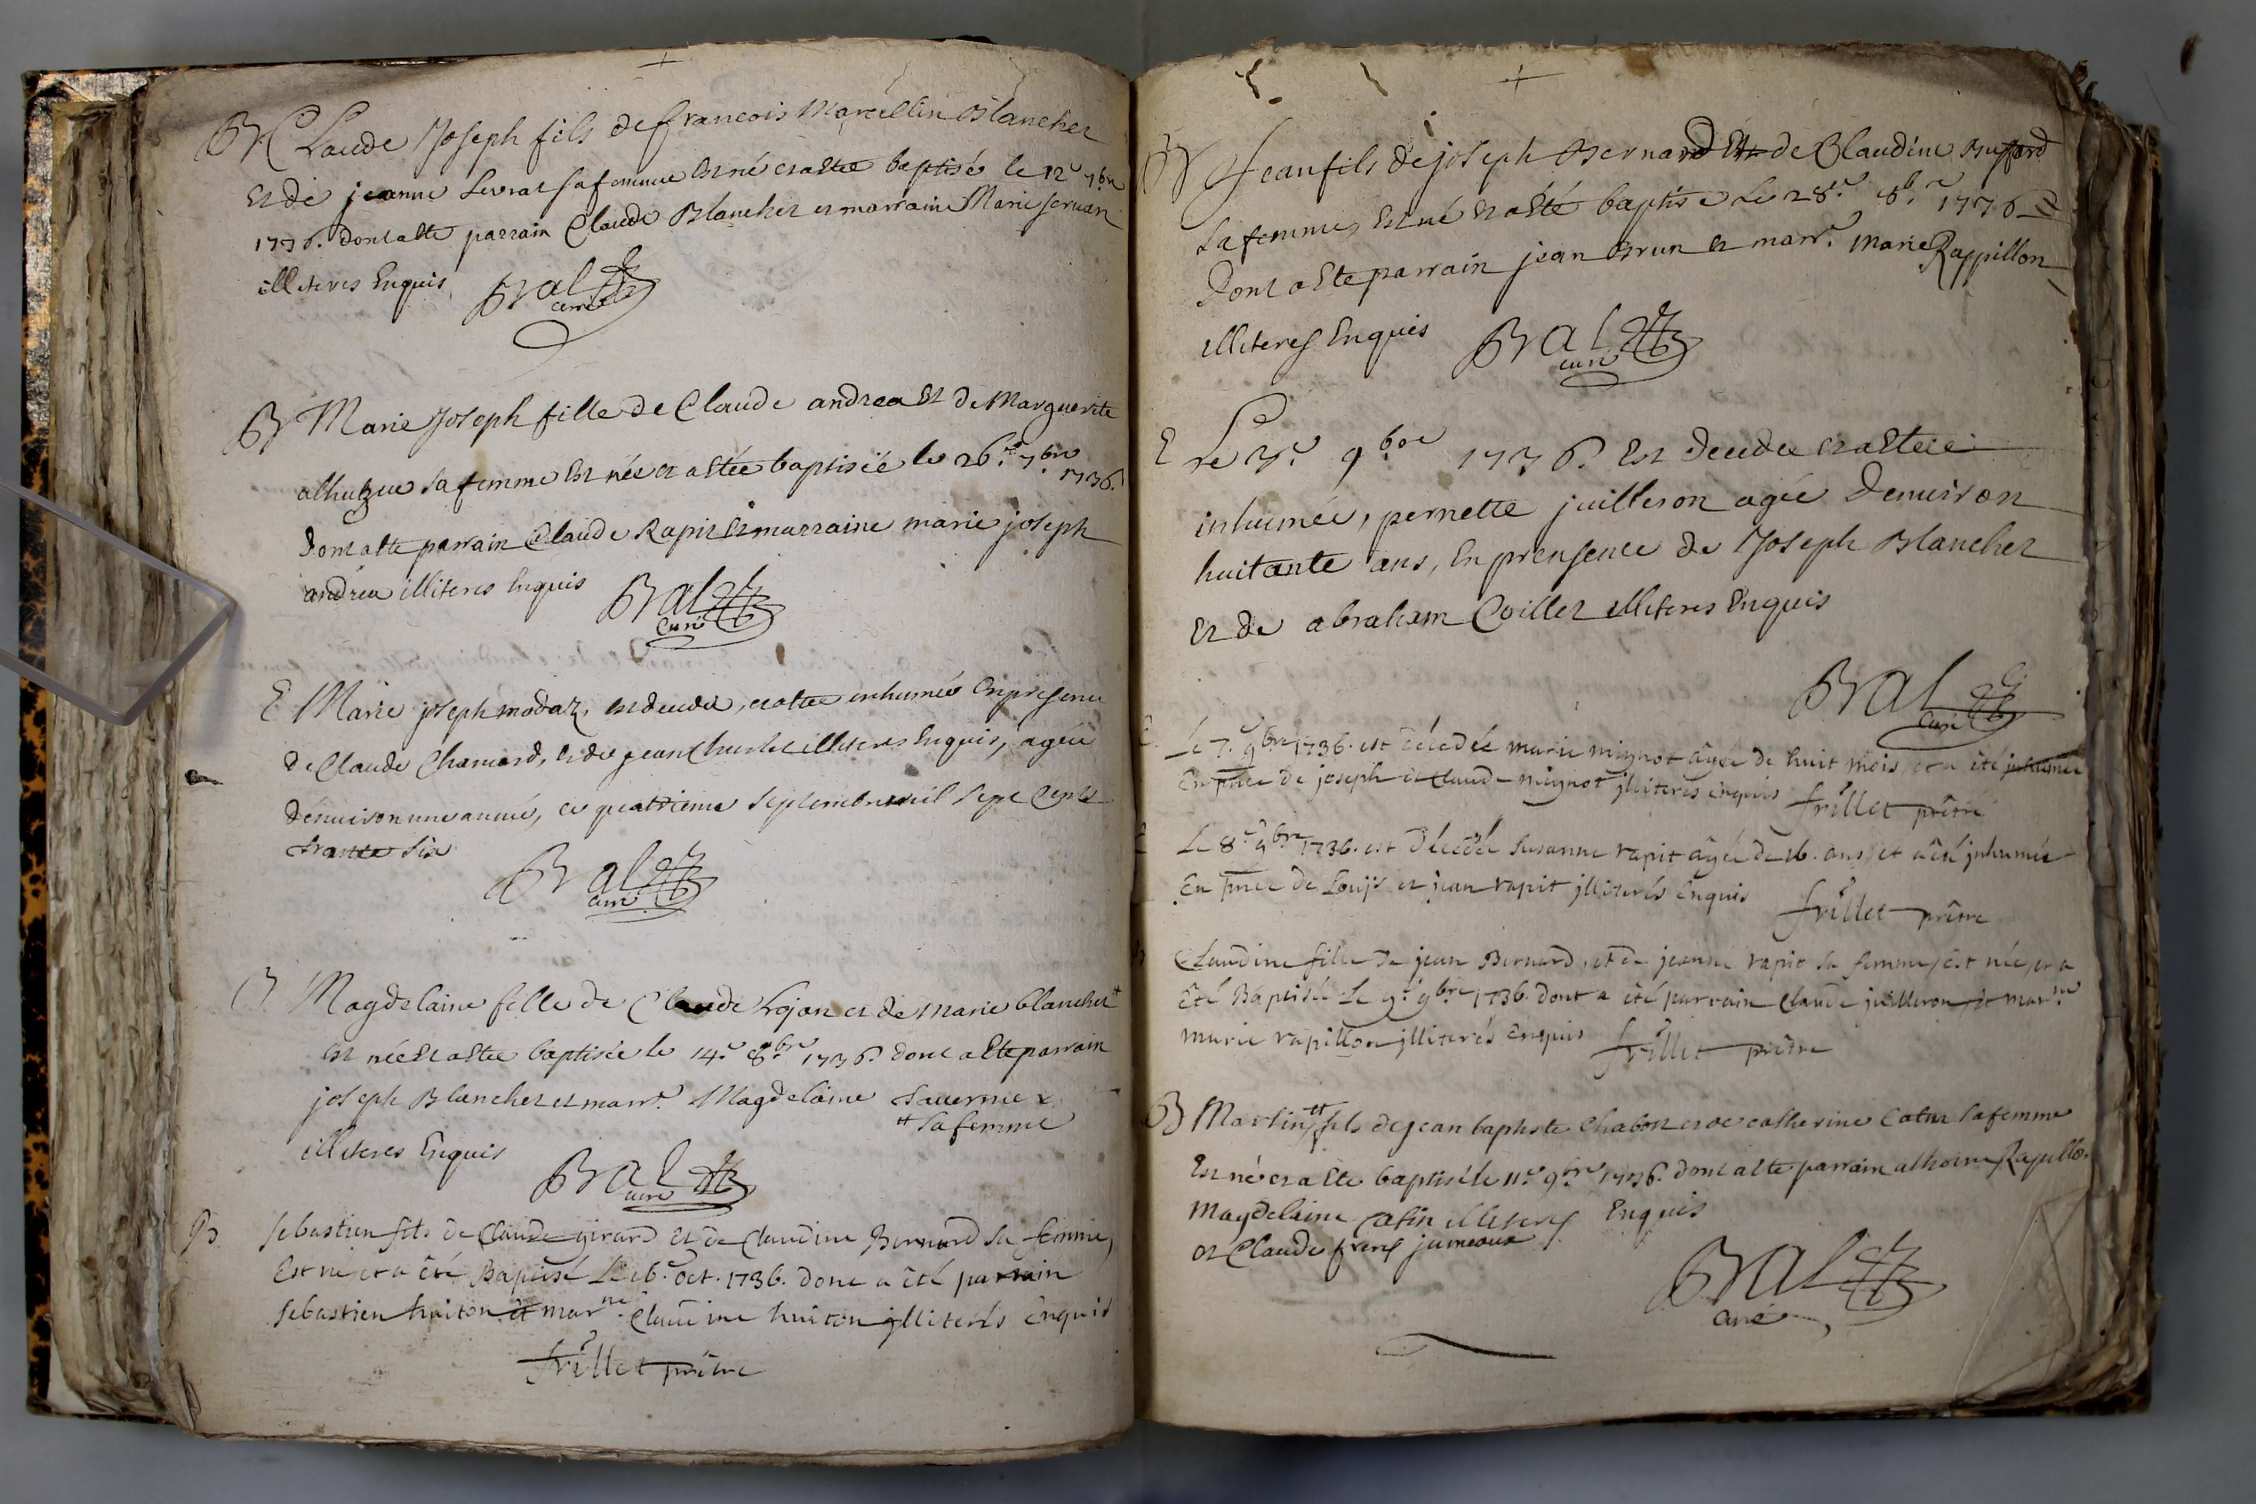 B Claude Joseph fils de francois Marcellin Blanchet
et de jeanne Levrat sa femme est né et a esté baptisé le 12e 7bre
1736. dont a esté parrain Claude Blanchet et marraine Marie
illiteres Enquis Bral
curé
B Marie Joseph fille de Claude andrea et de Marguerite
sa femme est née et a estée baptisée le 26e 7bre
1736.
dont a esté parrain Claude Rapit et marraine marie joseph
andrea illiteres Enquis Bral
curé
E Marie joseph modaz, est decedee, et a estee inhumée En presence
de Claude Chamard, et de jean illiteres Enquis, agée
denviron une année, ce quatrieme septembre mil sept Cents
trante six
Bral
curé
B Magdelaine fille de Claude et de marie blanchet #
est née Et a estee baptisée le 14e 8bre 1736. dont a Esté parrain
joseph Blanchet et marre. Magdelaine Tavernier
# sa femme
illiteres Enquis
Bral
curé
B sebastien fils de Claude girard et de Claudine Bernard sa femme,
Est né, et a été Baptisé Le 16e oct. 1736. dont a été parrain
sebastien huiton et marne Claudine huiton jlliterés enquis
frillet prêtre
B Jean fils de joseph Bernard Et de Claudine Buffard
sa femme, Est né Et a Esté baptisé Le 28e 8bre 1736
Dont a Esté parrain jean Brun et marre. marie Rappillon
illiteres Enquis Bral
curé
E Le 3e 9bre 1736. Est decedee et a Estee
inhumée, pernette juilleron agée Denviron
huitante ans, En presence de Joseph Blanchet
Et de abraham Coillet illiteres Enquis
Bral
curé
Le 7e 9bre 1736. est décedée marie mignot âgée de huit mois et a été jnhumée
En pnce de joseph et Claude mignot jlliterés enquis frillet prêtre
Le 8e 9bre 1736. est décedée Susanne rapit âgée de 16. ans, et a été jnhumée
En pnce de Louis et jean rapit jlliterés enquis frillet prêtre
Claudine fille de jean Bernard, et de jeanne rapit sa femme, est née, et a
été Baptisée Le 9e 9bre 1736. dont a été parrain Claude juilleron et marne
marie rapillon jlliterés enquis frillet prêtre
B Martin # fils de jean baptiste Chabot et de catherine Catin sa femme
Est né et a Esté baptisé le 11e 9bre 1736. dont a esté parrain Rapillon
Magdelaine Catin illiteres Enquis
et Claude freres jumeaux
Bral
curé